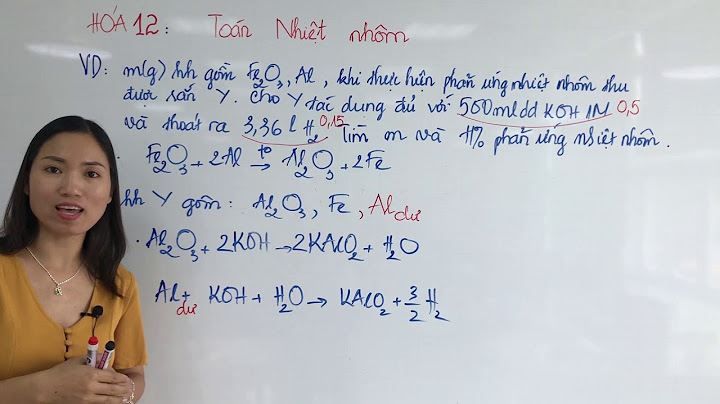 HÓA 12: Toán Nhiệt nhôm
VD: m(g) hh gồm Fe₂O₃, Al, khi thực hiện phản ứng nhiệt nhôm thu
được rắn Y. Cho Y tác dụng đủ với 500ml dd KOH 1M 0,5
và thoát ra 3,36 l H₂ 0,15 tìm m và H% phản ứng nhiệt nhôm.
. Fe₂O₃ + 2Al →(t⁰) Al₂O₃ + 2Fe
hh Y gồm: Al₂O₃, Fe, Al dư
. Al₂O₃ + 2KOH → 2KAlO₂ + H₂O
Al dư + KOH + H₂O → KAlO₂ + 3/2 H₂